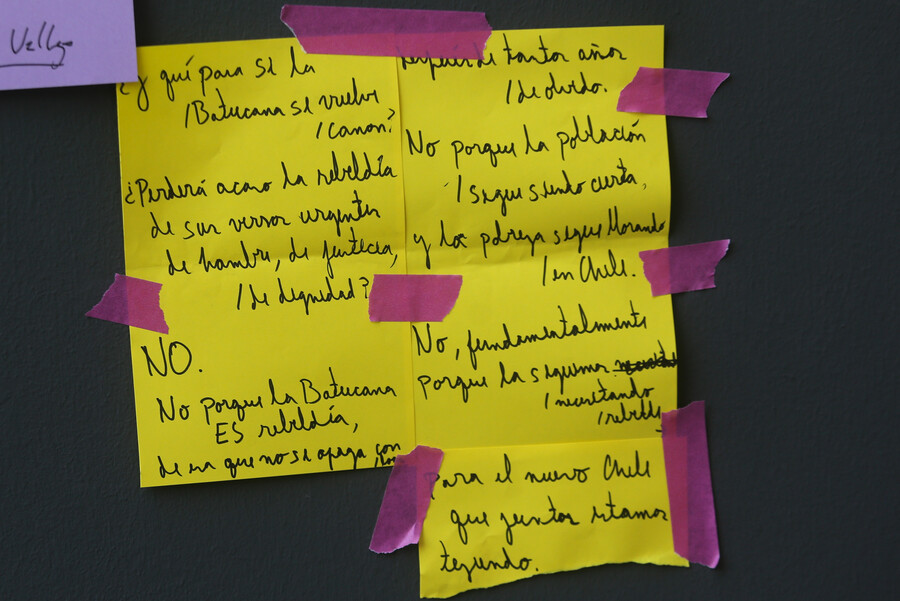 Vallejo
¿y qué pasa si la
/Batucana se vuelve
/canon?
¿Perderá acaso la rebeldía
de sus versos urgentes
de hambre, de justicia,
/de dignidad?
NO.
No porque la Batucana
ES rebeldía,
de esa que no se apaga con
/los
después de tantos años
/de olvido.
No porque la población
/sigue siendo cierta,
y la pobreza sigue llorando
/en Chile.
No, fundamentalmente
porque la seguimos
/necesitando
/rebelde,
para el nuevo Chile
que juntos estamos
tejiendo.